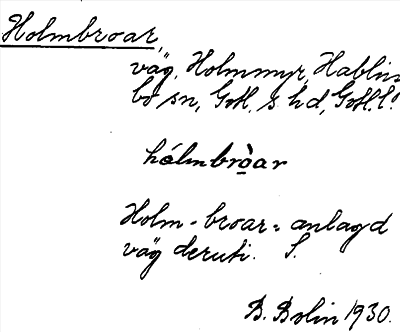 Holmbroar,
väg, Holmmyr, Hablins
bo sn, Gotl. s hd, Gotl. l.
hólmbròar
Holm-broar = anlagd
väg deruti. S.
B. Bolin 1930.